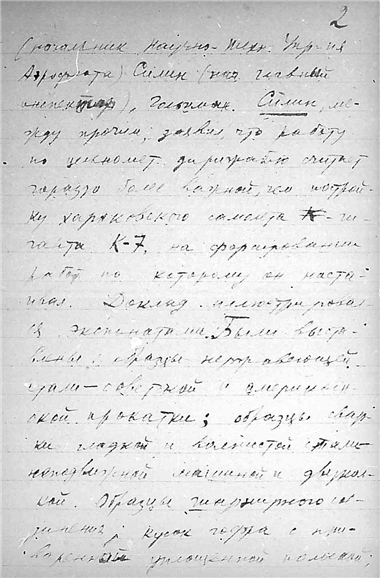 2
(начальник научно-техн. Упр-ия
Аэрофлота) Сілин (ныне главный
инспектор), Гольцман. Сілин, ме-
жду прочим, заявил, что работу
по цельномет. дирижаблю считает
гораздо более важной, чем построй-
ку харьковского самолета К-ги-
ганта К-7, на форсировании
работ по которому он наста-
ивал. Доклад иллюстрировал-
ся экспонатами. Были выста-
влены: образцы нержавеющей
стали советской и американ-
ской прокатки; образцы свар-
ки гладкой и волнистой стали
неподвижной машиной и двурол-
кой. Образцы шарнирного со-
динения; кусок гофра с при-
варенной уплощенной полосой;